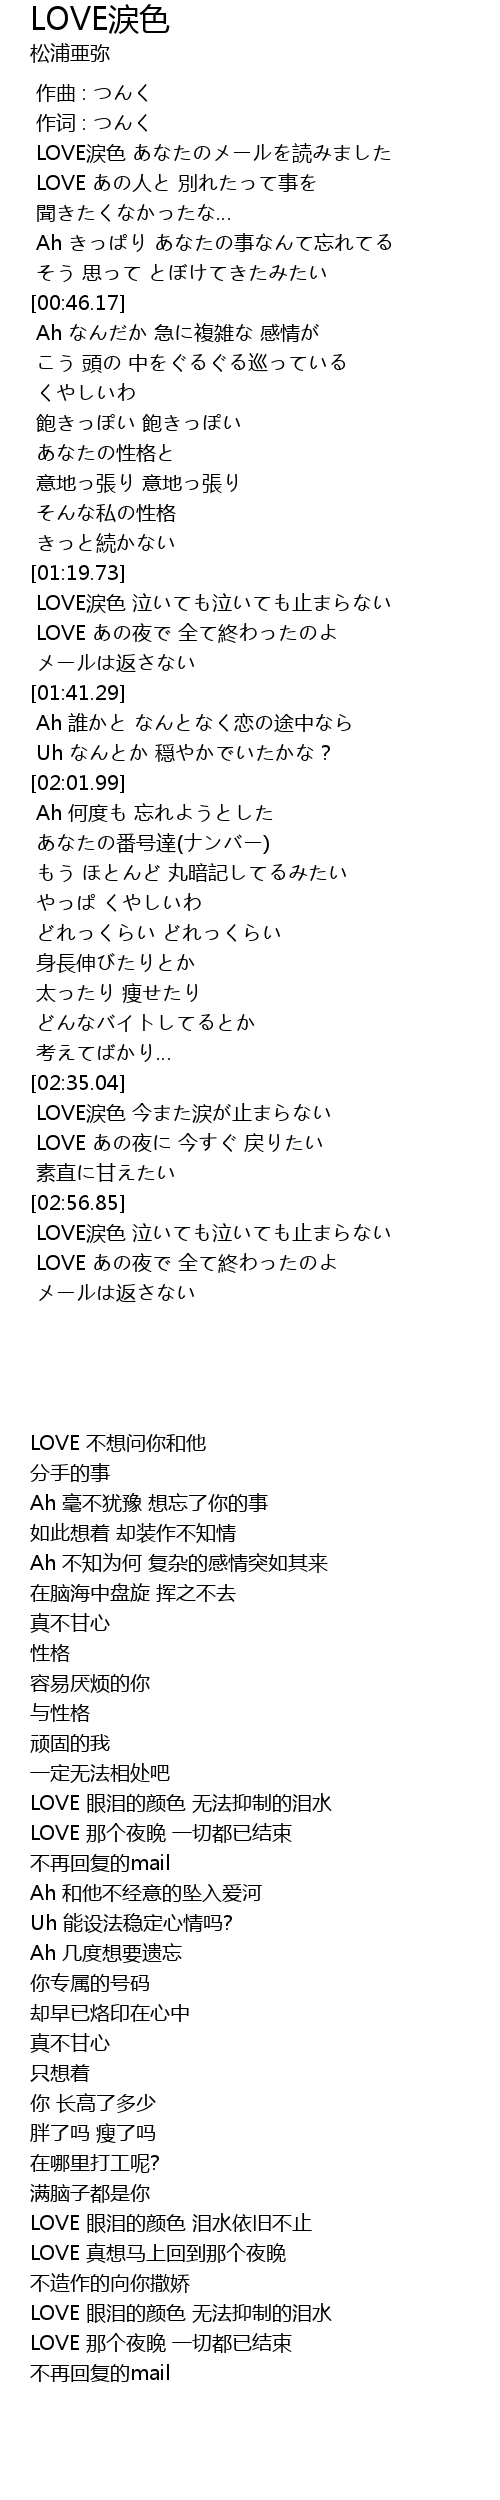 LOVE涙色
松浦亜弥
作曲 : つんく
作词 : つんく
LOVE涙色 あなたのメールを読みました
LOVE あの人と 別れたって事を
聞きたくなかったな...
Ah きっぱり あなたの事なんて忘れてる
そう 思って とぼけてきたみたい
[00:46.17]
Ah なんだか 急に複雑な 感情が
こう 頭の 中をぐるぐる巡っている
くやしいわ
飽きっぽい 飽きっぽい
あなたの性格と
意地っ張り 意地っ張り
そんな私の性格
きっと続かない
[01:19.73]
LOVE涙色 泣いても泣いても止まらない
LOVE あの夜で 全て終わったのよ
メールは返さない
[01:41.29]
Ah 誰かと なんとなく恋の途中なら
Uh なんとか 穏やかでいたかな ?
[02:01.99]
Ah 何度も 忘れようとした
あなたの番号達(ナンバー)
もう ほとんど 丸暗記してるみたい
やっぱ くやしいわ
どれっくらい どれっくらい
身長伸びたりとか
太ったり 痩せたり
どんなバイトしてるとか
考えてばかり...
[02:35.04]
LOVE涙色 今また涙が止まらない
LOVE あの夜に 今すぐ 戻りたい
素直に甘えたい
[02:56.85]
LOVE涙色 泣いても泣いても止まらない
LOVE あの夜で 全て終わったのよ
メールは返さない
LOVE 不想问你和他
分手的事
Ah 毫不犹豫 想忘了你的事
如此想着 却装作不知情
Ah 不知为何 复杂的感情突如其来
在脑海中盘旋 挥之不去
真不甘心
性格
容易厌烦的你
与性格
顽固的我
一定无法相处吧
LOVE 眼泪的颜色 无法抑制的泪水
LOVE 那个夜晚 一切都已结束
不再回复的mail
Ah 和他不经意的坠入爱河
Uh 能设法稳定心情吗?
Ah 几度想要遗忘
你专属的号码
却早已烙印在心中
真不甘心
只想着
你 长高了多少
胖了吗 瘦了吗
在哪里打工呢?
满脑子都是你
LOVE 眼泪的颜色 泪水依旧不止
LOVE 真想马上回到那个夜晚
不造作的向你撒娇
LOVE 眼泪的颜色 无法抑制的泪水
LOVE 那个夜晚 一切都已结束
不再回复的mail